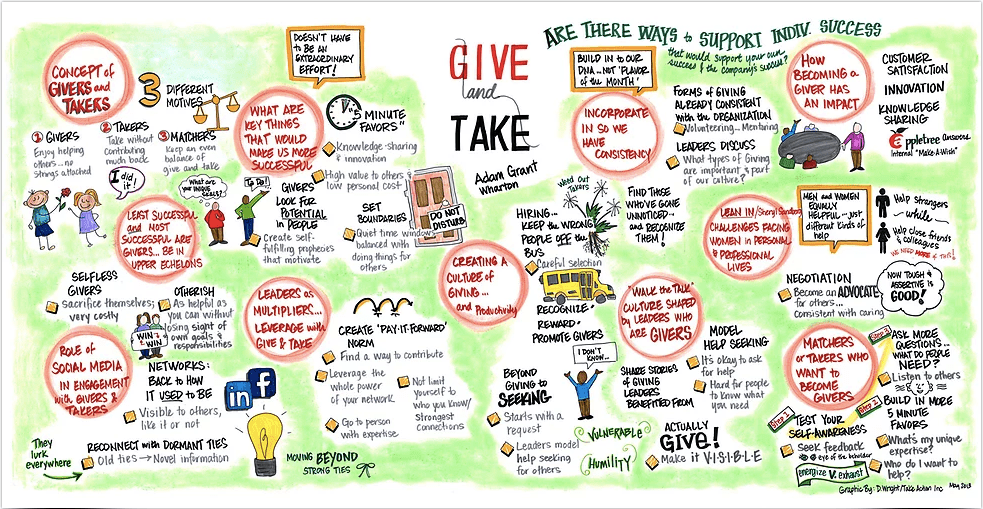 GIVE
and
TAKE
Adam Grant
Wharton
CONCEPT of
GIVERS and
TAKERS
3 DIFFERENT
MOTIVES
① GIVERS
Enjoy helping
others...no
strings attached
② TAKERS
Take without
contributing
much back
③ MATCHERS
Keep an even
balance of
give and take
I did
it!
What are
your UNIQUE
SKILLS?
To Do
LEAST SUCCESSFUL
and MOST
SUCCESSFUL ARE
GIVERS... BE IN
UPPER ECHELONS
SELFLESS
GIVERS
Sacrifice themselves;
very costly
OTHERISH
As helpful as
you can without
losing sight of
own goals &
responsibilities
WIN
WIN
ROLE of
SOCIAL MEDIA
IN ENGAGEMENT
with GIVERS &
TAKERS
NETWORKS:
BACK to HOW
IT USED to BE
Visible to others,
like it or not
in
f
They
lurk
everywhere
RECONNECT with DORMANT TIES
Old ties → Novel information
MOVING BEYOND
STRONG TIES
DOESN'T HAVE
to BE AN
EXTRAORDINARY
EFFORT!
WHAT ARE
KEY THINGS
THAT WOULD
MAKE US MORE
SUCCESSFUL
5 MINUTE
FAVORS"
Knowledge-sharing
& innovation
High value to others &
low personal cost
GIVERS
LOOK FOR
POTENTIAL
in PEOPLE
Create self-
fulfilling prophecies
that motivate
SET
BOUNDARIES
Quiet time windows
balanced with
doing things for
others
DO NOT
DISTURB
LEADERS as
MULTIPLIERS...
LEVERAGE with
GIVE & TAKE
CREATE 'PAY-IT-FORWARD'
NORM
Find a way to contribute
Leverage the
whole power
of your network
Go to person
with expertise
Not limit
yourself to
who you know/
strongest
connections
ARE THERE WAYS to SUPPORT INDIV. SUCCESS
that would support your own
success & the company's success?
BUILD IN to OUR
DNA...NOT 'FLAVOR
of the MONTH'
INCORPORATE
IN SO WE
HAVE
CONSISTENCY
FORMS of GIVING
ALREADY CONSISTENT
with the ORGANIZATION
Volunteering... Mentoring
LEADERS DISCUSS
What types of Giving
are important & part
of our culture?
HOW
BECOMING a
GIVER HAS
AN IMPACT
CUSTOMER
SATISFACTION
INNOVATION
KNOWLEDGE
SHARING
Appletree answers
Internal "Make-A-Wish"
CREATING A
CULTURE of
GIVING...
and Productivity
Weed Out
Takers
HIRING...
KEEP the WRONG
PEOPLE OFF the
BUS
Careful selection
FIND THOSE
WHO'VE GONE
UNNOTICED
and
RECOGNIZE
THEM!
RECOGNIZE -
REWARD -
PROMOTE GIVERS
I DON'T
KNOW...
BEYOND
GIVING to
SEEKING
Starts with a
request
Leaders model
help seeking
for others
VULNERABLE
HUMILITY
'WALK the TALK'
CULTURE SHAPED
by LEADERS WHO
ARE GIVERS
SHARE STORIES
of GIVING
LEADERS
BENEFITED FROM
MODEL
HELP SEEKING
It's okay to ask
for help
Hard for people
to know what
you need
ACTUALLY
GIVE!
Make it V-I-S-I-B-L-E
LEAN IN/Sheryl Sandberg
CHALLENGES FACING
WOMEN in PERSONAL
& PROFESSIONAL
LIVES
MEN and WOMEN
EQUALLY
HELPFUL...just
different kinds of
help
Help strangers
while
Help close friends
& colleagues
WE NEED MORE of THIS!
NEGOTIATION
Become an ADVOCATE
for others...
consistent with caring
NOW TOUGH &
ASSERTIVE is
GOOD!
MATCHERS
or TAKERS WHO
WANT to
BECOME
GIVERS
Step 1
TEST YOUR
SELF-AWARENESS
Seek feedback
eye of the beholder
energize v. exhaust
Step 2
BUILD IN MORE
5 MINUTE
FAVORS
What's my unique
expertise?
Who do I want to
help?
ASK MORE
QUESTIONS...
WHAT DO PEOPLE
NEED?
Listen to others
Graphic By: D.Wright/Take Action Inc May, 2013